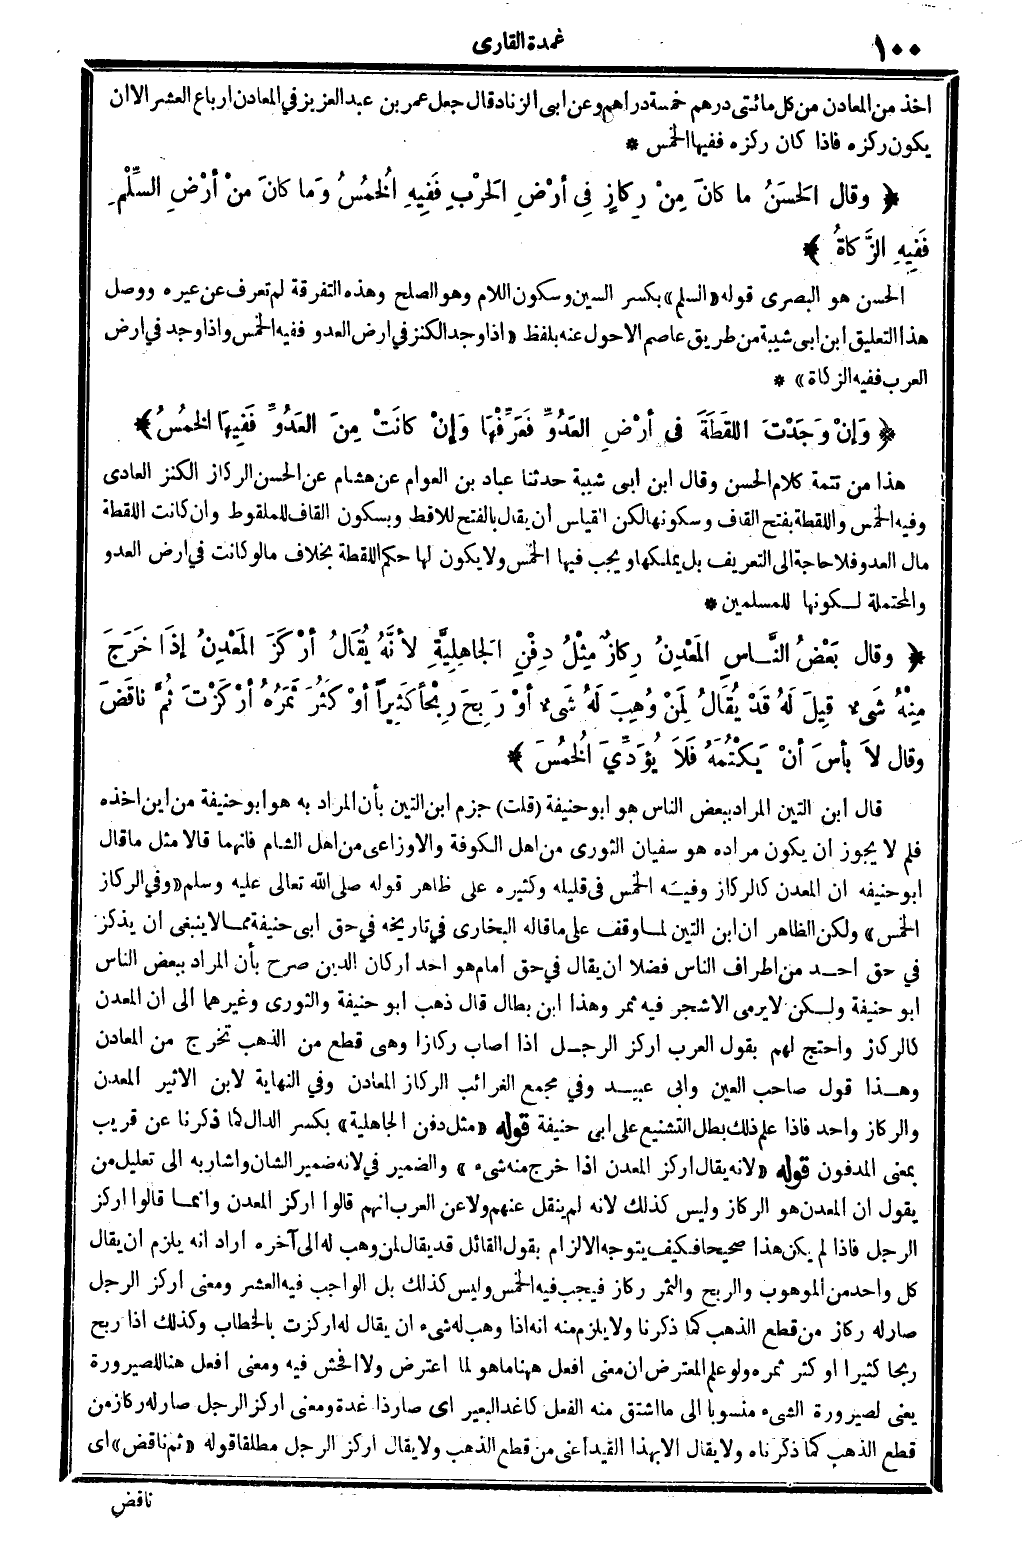 ١٠٠
عمدة القارى
اخذ من المعادن من كل مائتى درهم خمسة دراهم وعن ابى الزناد قال جعل عمر بن عبد العزيز في المعادن ارباع العشر الا ان
يكون ركزه فاذا كان ركزه ففيها الخمس *
﴿ وقال الحَسَنُ ما كانَ مِنْ رِكازٍ فِى أرْضِ الحَرْبِ فَفِيهِ الخُمسُ وَما كانَ منْ أرْضِ السِّلْمِ
فَفِيهِ الزَّكاةُ ﴾
الحسن هو البصرى قوله «السلم» بكسر السين وسكون اللام وهو الصلح وهذه التفرقة لم تعرف عن غيره ووصل
هذا التعليق ابن ابى شيبة من طريق عاصم الاحول عنه بلفظ «اذا وجد الكنز في ارض العدو ففيه الخمس واذا وجد في ارض
العرب ففيه الزكاة» *
﴿ وَإنْ وَجَدْتَ اللقَطَةَ فى أرْضِ العَدُوِّ فَعَرِّفْها وَإنْ كانَتْ مِنَ العَدُوِّ فَفِيها الخُمسُ ﴾
هذا من تتمة كلام الحسن وقال ابن ابى شيبة حدثنا عباد بن العوام عن هشام عن الحسن الركاز الكنز العادى
وفيه الخمس واللقطة بفتح القاف وسكونها لكن القياس أن يقال بالفتح للاقط وبسكون القاف للملقوط وان كانت اللقطة
مال العدو فلا حاجة الى التعريف بل يملكها ويجب فيها الخمس ولا يكون لها حكم اللقطة بخلاف ما لو كانت في ارض العدو
والمحتملة لكونها للمسلمين *
﴿ وقال بَعْضُ النَّاسِ المَعْدِنُ رِكازٌ مِثْلُ دِفْنِ الجَاهِلِيَّةِ لأنَّهُ يُقَالُ أرْكَزَ المَعْدِنُ إذَا خَرَجَ
مِنْهُ شَىْء قِيلَ لَهُ قَدْ يُقَالُ لِمَنْ وُهِبَ لَهُ شَىْء أوْ رَبِحَ رِبْحاً كَثِيراً أوْ كَثُرَ ثَمَرُهُ أرْكَزْتَ ثُمَّ ناقَضَ
وقال لاَ بأسَ أنْ يَكْتُمَهُ فَلاَ يُؤَدِّيَ الخُمُسَ ﴾
قال ابن التين المراد ببعض الناس هو ابو حنيفة (قلت) جزم ابن التين بأن المراد به هو ابو حنيفة من اين اخذه
فلم لا يجوز ان يكون مراده هو سفيان الثورى من اهل الكوفة والاوزاعى من اهل الشام فانهما قالا مثل ما قال
ابو حنيفه ان المعدن كالركاز وفيه الخمس فى قليله وكثيره على ظاهر قوله صلى الله تعالى عليه وسلم «وفي الركاز
الخمس» ولكن الظاهر ان ابن التين لما وقف على ما قاله البخارى في تاريخه في حق ابى حنيفة مما لا ينبغى ان يذكر
في حق احد من اطراف الناس فضلا ان يقال في حق امام هو احد اركان الدين صرح بأن المراد ببعض الناس
ابو حنيفة ولكن لا يرمى الا شجر فيه ثمر وهذا ابن بطال قال ذهب ابو حنيفة والثورى وغيرهما الى ان المعدن
كالركاز واحتج لهم بقول العرب اركز الرجل اذا اصاب ركازا وهى قطع من الذهب تخرج من المعادن
وهذا قول صاحب العين وابى عبيد وفي مجمع الغرائب الركاز المعادن وفي النهاية لابن الاثير المعدن
والركاز واحد فاذا علم ذلك بطل التشنيع على ابى حنيفة قوله «مثل دفن الجاهلية» بكسر الدال كما ذكرنا عن قريب
بمعنى المدفون قوله «لانه يقال اركز المعدن اذا خرج منه شىء» والضمير في لانه ضمير الشان واشار به الى تعليل من
يقول ان المعدن هو الركاز وليس كذلك لانه لم ينقل عنهم ولا عن العرب انهم قالوا اركز المعدن وانما قالوا اركز
الرجل فاذا لم يكن هذا صحيحا فكيف يتوجه الالزام بقول القائل قد يقال لمن وهب له الى آخره اراد انه يلزم ان يقال
كل واحد من الموهوب والربح والثمر ركاز فيجب فيه الخمس وليس كذلك بل الواجب فيه العشر ومعنى اركز الرجل
صار له ركاز من قطع الذهب كما ذكرنا ولا يلزم منه انه اذا وهب له شىء ان يقال له اركزت بالخطاب وكذلك اذا ربح
ربحا كثيرا او كثر ثمره ولو علم المعترض ان معنى افعل ههنا ما هو لما اعترض ولا افحش فيه ومعنى افعل هنا للصيرورة
يعنى لصيرورة الشىء منسوبا الى ما اشتق منه الفعل كاغد البعير اى صار ذا غدة ومعنى اركز الرجل صار له ركاز من
قطع الذهب كما ذكرناه ولا يقال الا بهذا القيد اعنى من قطع الذهب ولا يقال اركز الرجل مطلقا قوله «ثم ناقض» اى
ناقض